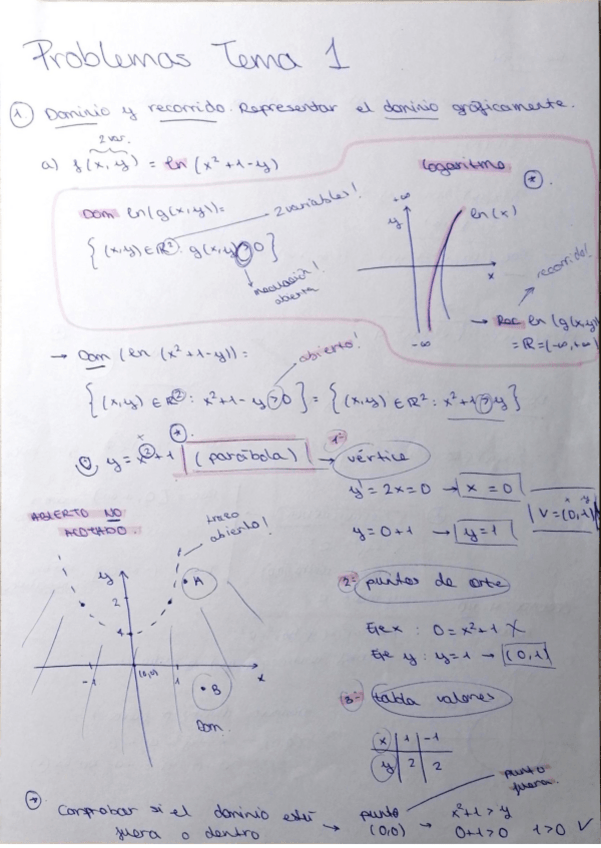 Problemas Tema 1
1. Dominio y recorrido. Representar el dominio gráficamente.
2 var.
a) f(x,y) = ln (x²+1-y)
logaritmo
*
Dom ln(g(x,y))=
2 variables!
{(x,y) ∈ ℝ² : g(x,y) > 0}
inecuación!
abierta
+∞
y
ln(x)
x
-∞
recorrido!
→ Rec ln (g(x,y))
= ℝ = (-∞,+∞
→ Dom (ln (x²+1-y)) =
abierto!
{(x,y) ∈ ℝ² : x²+1-y > 0} = {(x,y) ∈ ℝ² : x²+1 > y}
*
y = x²+1 (parábola) → 1º vértice
y' = 2x = 0 → x = 0
y = 0+1 → y = 1
x y
V = (0,1)
ABIERTO NO
ACOTADO.
trazo
abierto!
y
A
2
1
-1
(0,0)
1
x
B
Dom
2º puntos de corte
Eje x : 0 = x²+1 X
Eje y : y=1 → (0,1)
3º tabla valores
x | 1 | -1
y | 2 | 2
punto
fuera.
→ Comprobar si el dominio está
fuera o dentro
→ punto
(0,0)
→ x²+1 > y
0+1>0 1>0 ✓